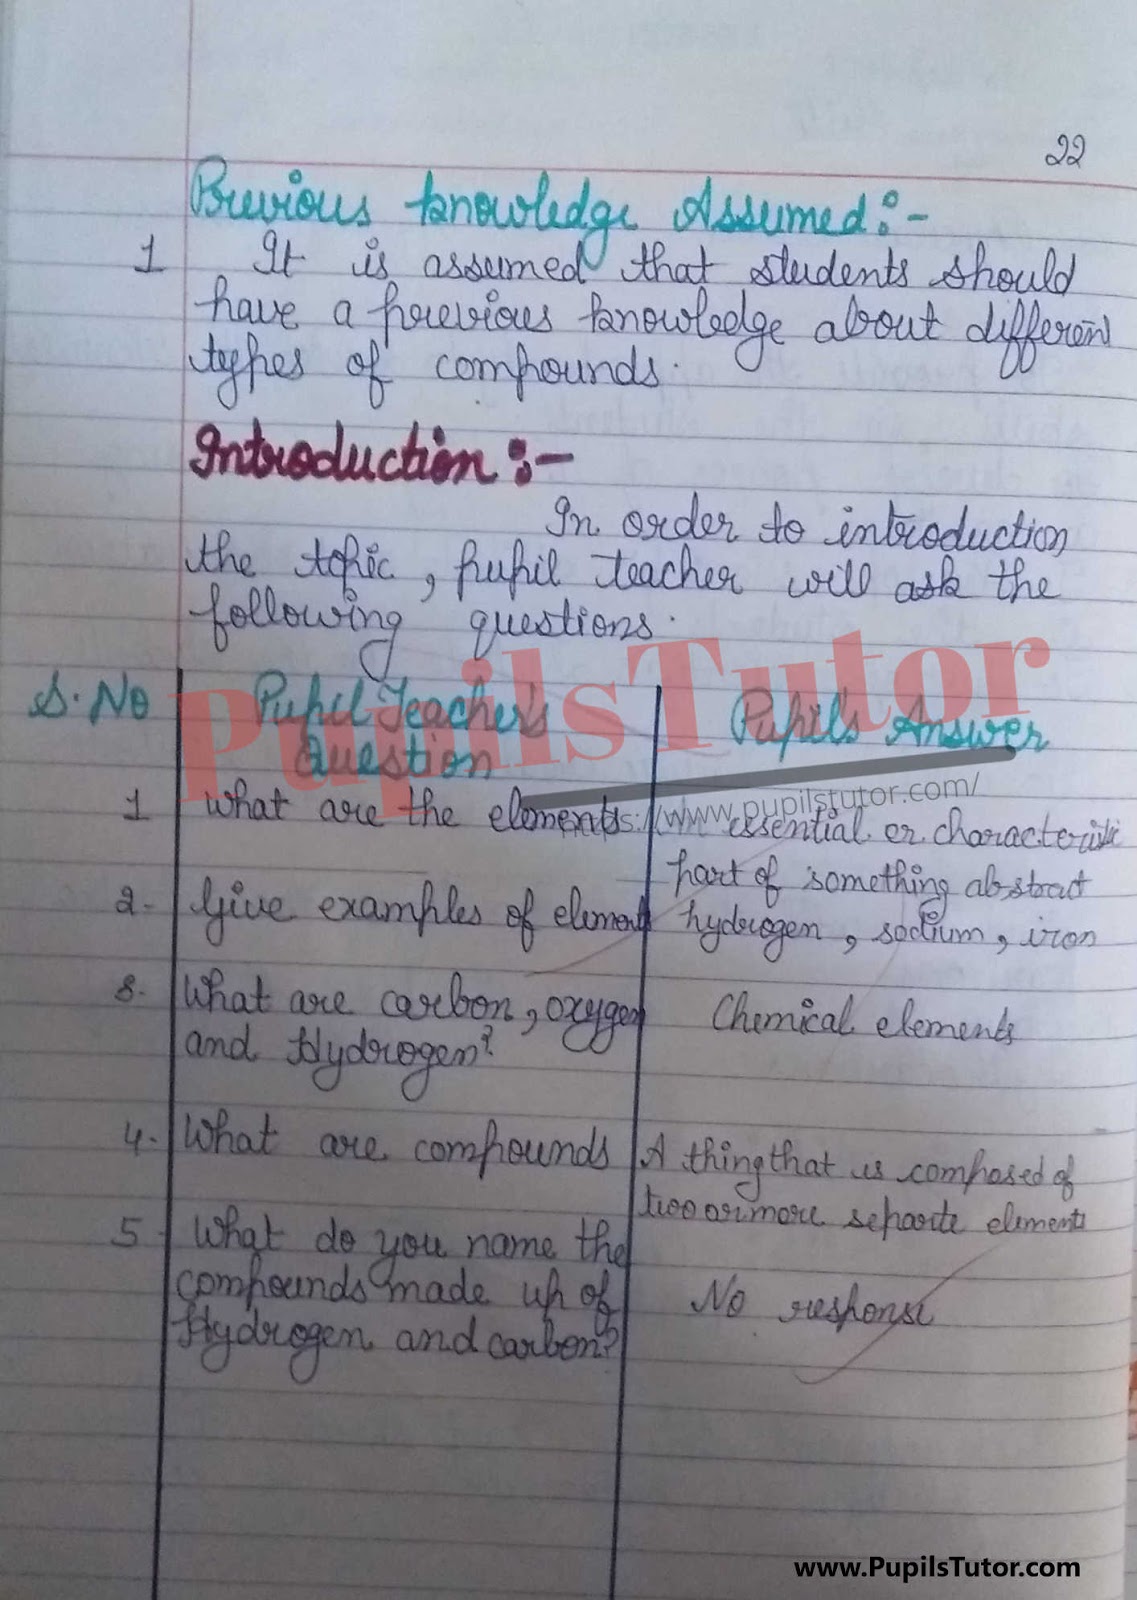 22
Previous knowledge Assumed:-
1 It is assumed that students should
have a previous knowledge about different
types of compounds.
Introduction:-
In order to introduction
the topic, pupil teacher will ask the
following questions.
S.No Pupil Teacher's Question Pupil's Answer
PupilsTutor
1 What are the elements essential or characteristic
part of something abstract
2. Give examples of elements hydrogen, sodium, iron
3. What are carbon, oxygen Chemical elements
and Hydrogen?
4. What are compounds A thing that is composed of
two or more separate elements
5 What do you name the
compounds made up of No response
Hydrogen and carbon?
www.pupilstutor.com/
www.PupilsTutor.com